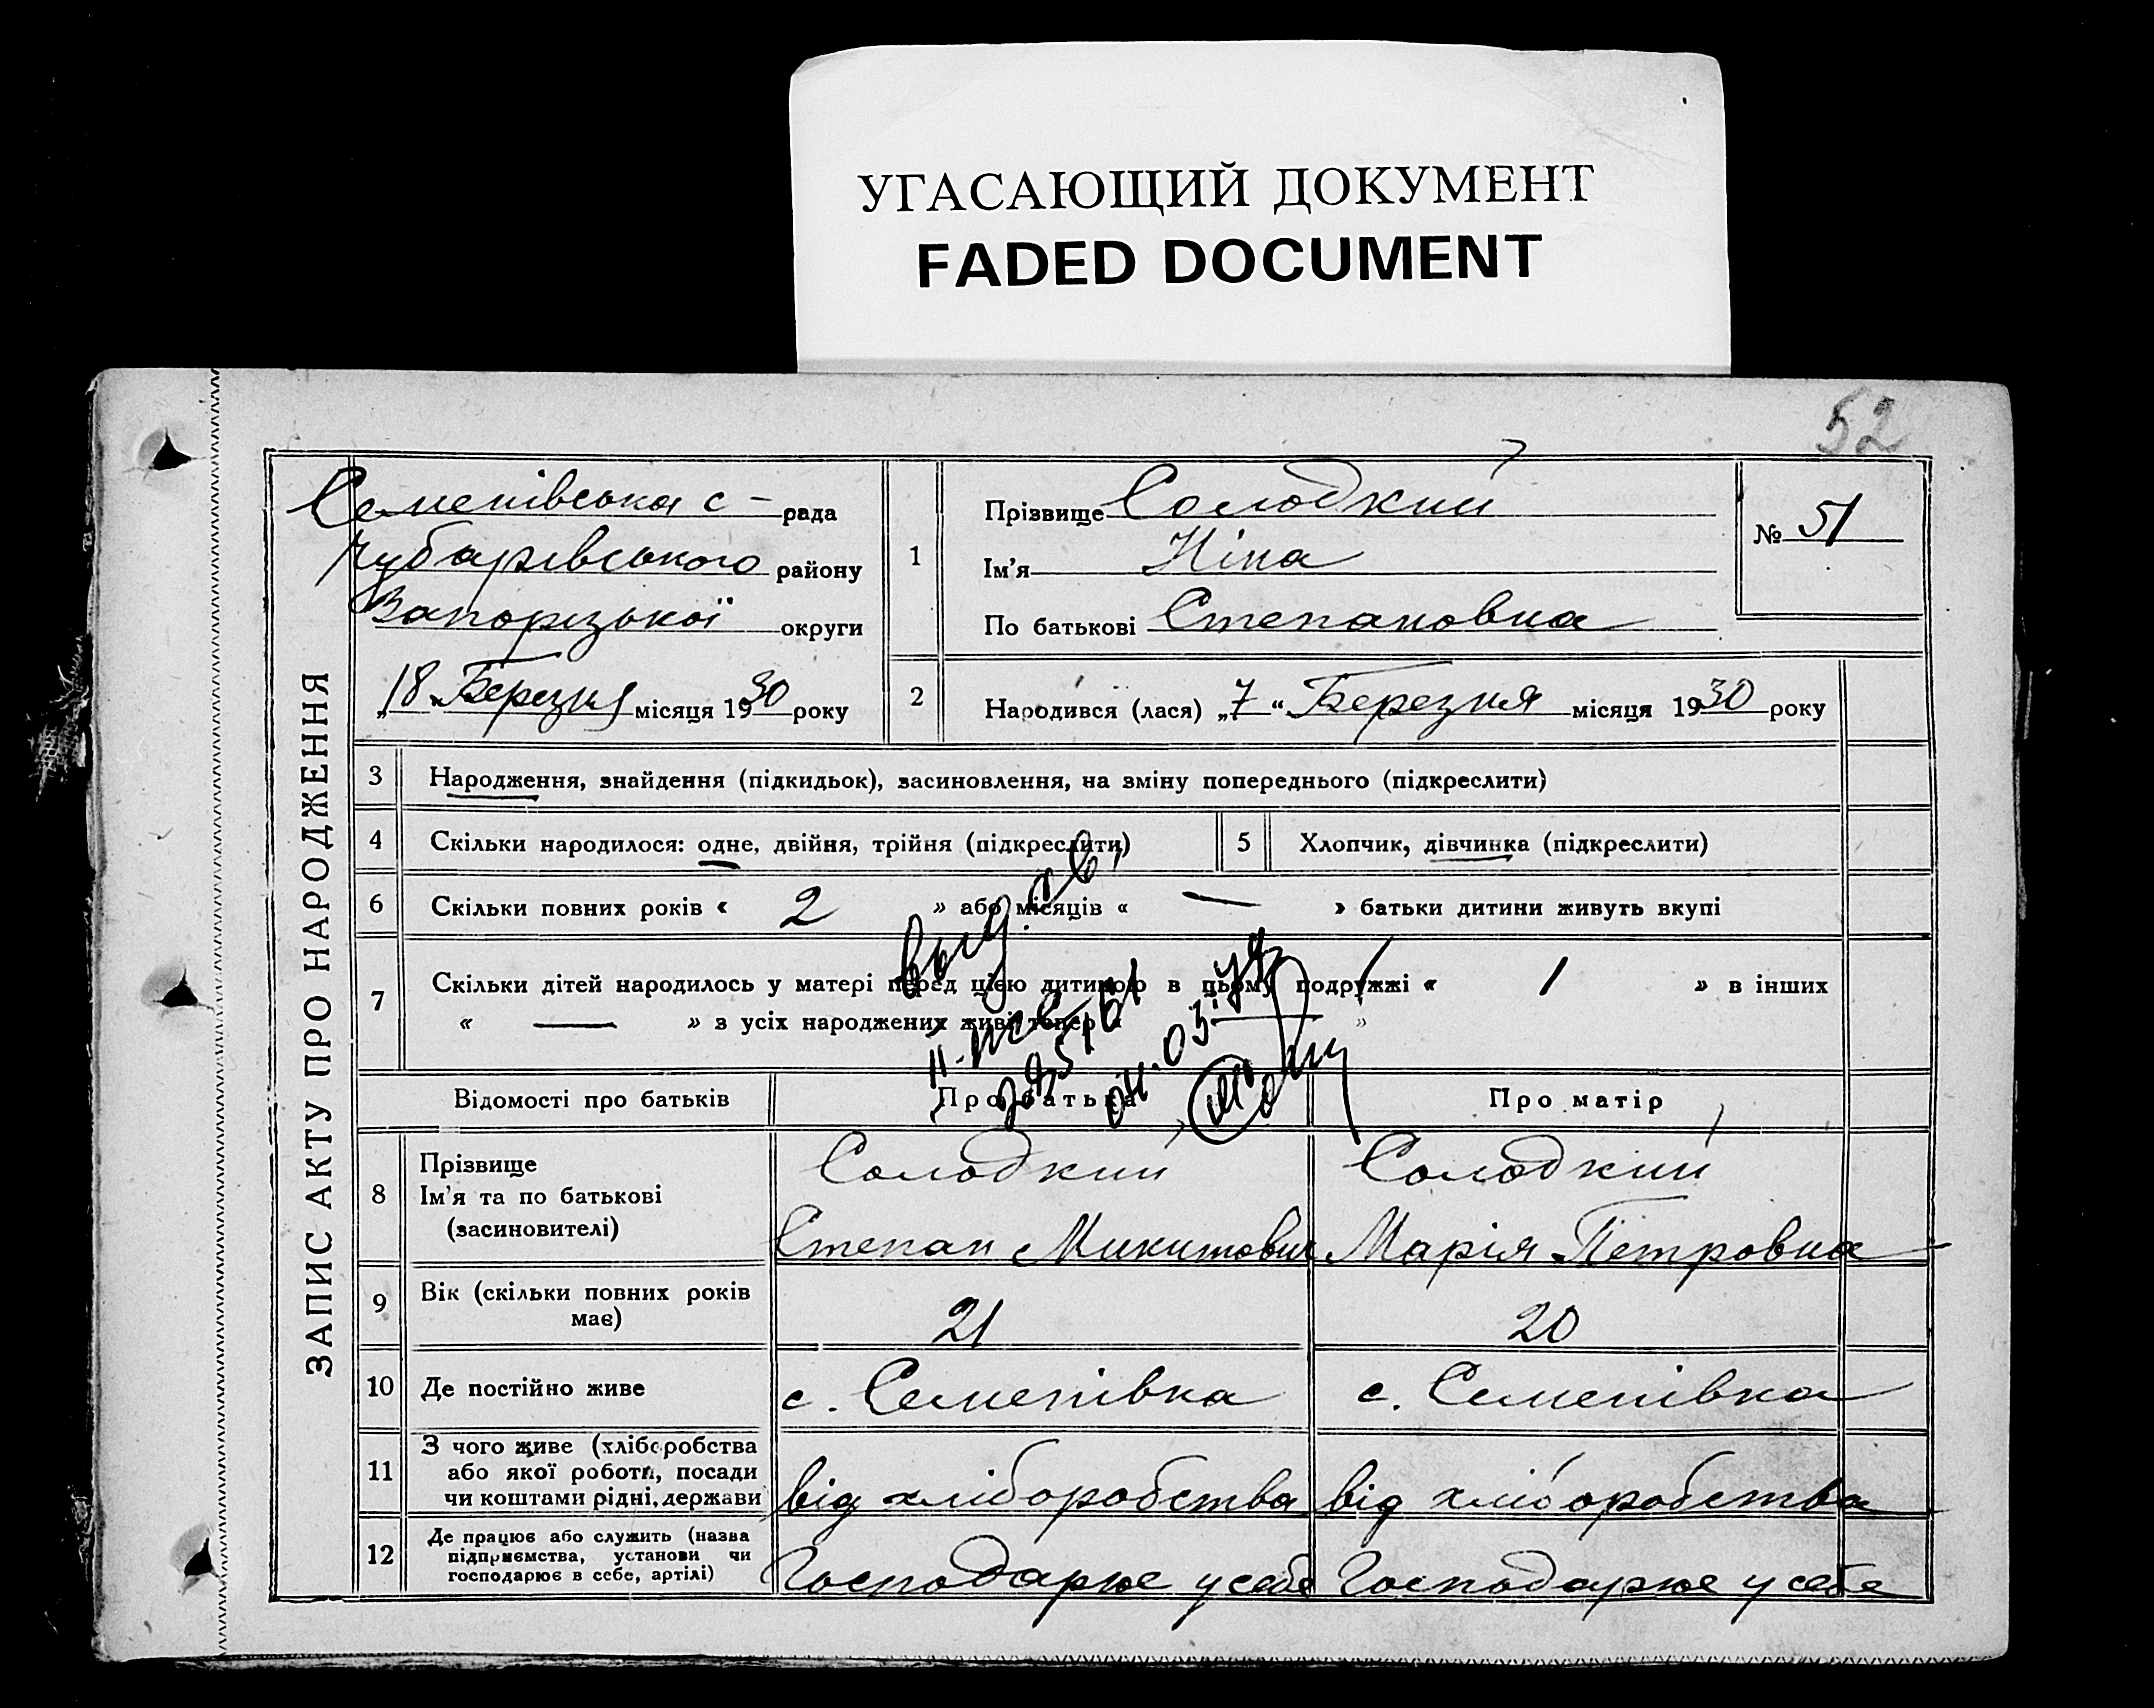 УГАСАЮЩИЙ ДОКУМЕНТ
FADED DOCUMENT
52
ЗАПИС АКТУ ПРО НАРОДЖЕННЯ
Семенівська с – рада
Чубарівського району
Запорізької округи
„18 Березня місяця 1930 року
1
Прізвище Солодкий
Ім'я Ніна
По батькові Степановна
№ 51
2
Народився (лася) „7“ Березня місяця 1930 року
3 Народження, знайдення (підкидьок), засиновлення, на зміну попереднього (підкреслити)
4 Скільки народилося: одне, двійня, трійня (підкреслити)
5 Хлопчик, дівчинка (підкреслити)
6 Скільки повних років « 2 » або місяців « — » батьки дитини живуть вкупі
7 Скільки дітей народилось у матері перед цією дитиною в цьому подружжі « 1 » в інших
« — » з усіх народжених живі тепер « — »
выд. св.
Відомості про батьків
Про батька
Про матір
8 Прізвище
Ім'я та по батькові
(засиновителі)
Солодкий
Степан Микитович
Солодкий
Марія Петровна
9 Вік (скільки повних років
має)
21
20
10 Де постійно живе
с. Семенівка
с. Семенівка
11 З чого живе (хліборобства
або якої роботи, посади
чи коштами рідні, держави
від хліборобства
від хліборобства
12 Де працює або служить (назва
підприємства, установи чи
господарює в себе, артілі)
Господарює у себе
Господарює у себе